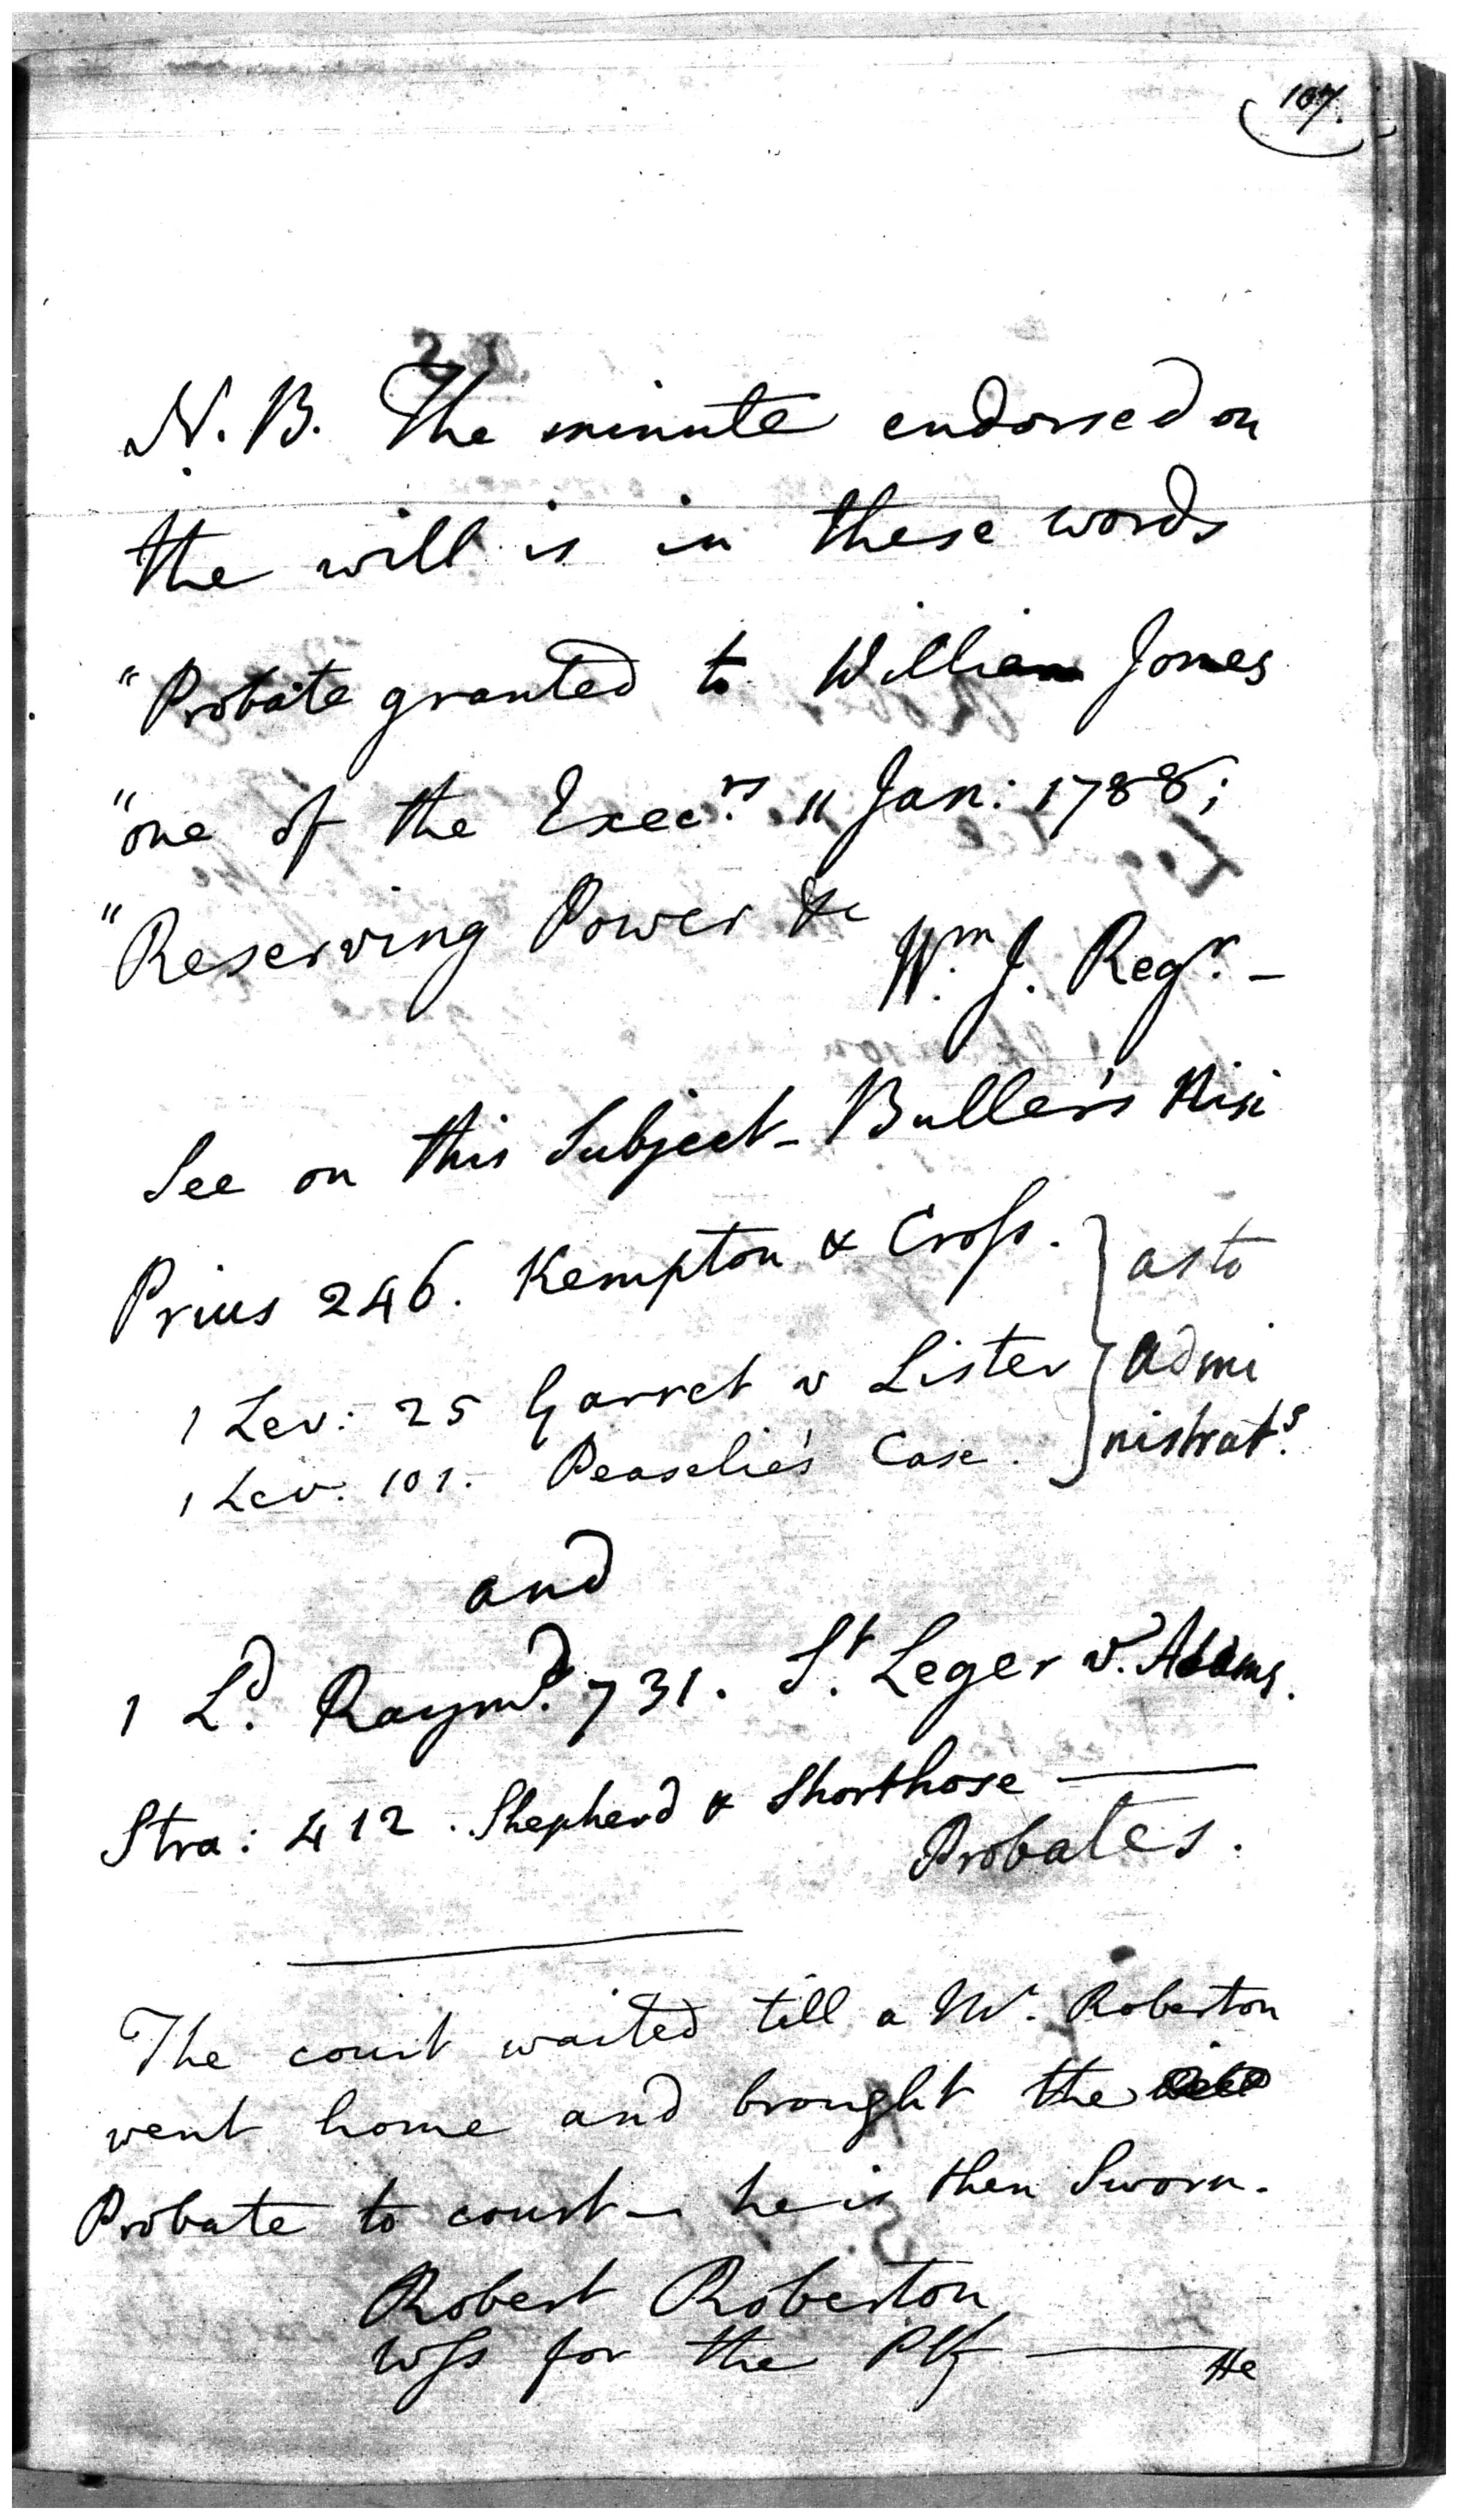 107.
N. B. The minute endorsed on
the will is in these words
"Probate granted to William Jones
"one of the Execrs. " Jan: 1788;
"Reserving Power &c
Wm. J. Regr. -
See on this Subject - Buller's Nisi
Prius 246. Kempton & Cross. } as to
1 Lev: 25 Garret v Lister } admi
1 Lev. 101. Peaselie's Case. } nistrats.
and
1 Ld. Raymd. 731. St. Leger v. Adams.
Stra: 412. Shepherd & Shorthose ———
Probates.
The court waited till a Mr. Roberton
went home and brought the
Probate to court - he is then Sworn.
Robert Roberton
Wss for the Plf ———
He